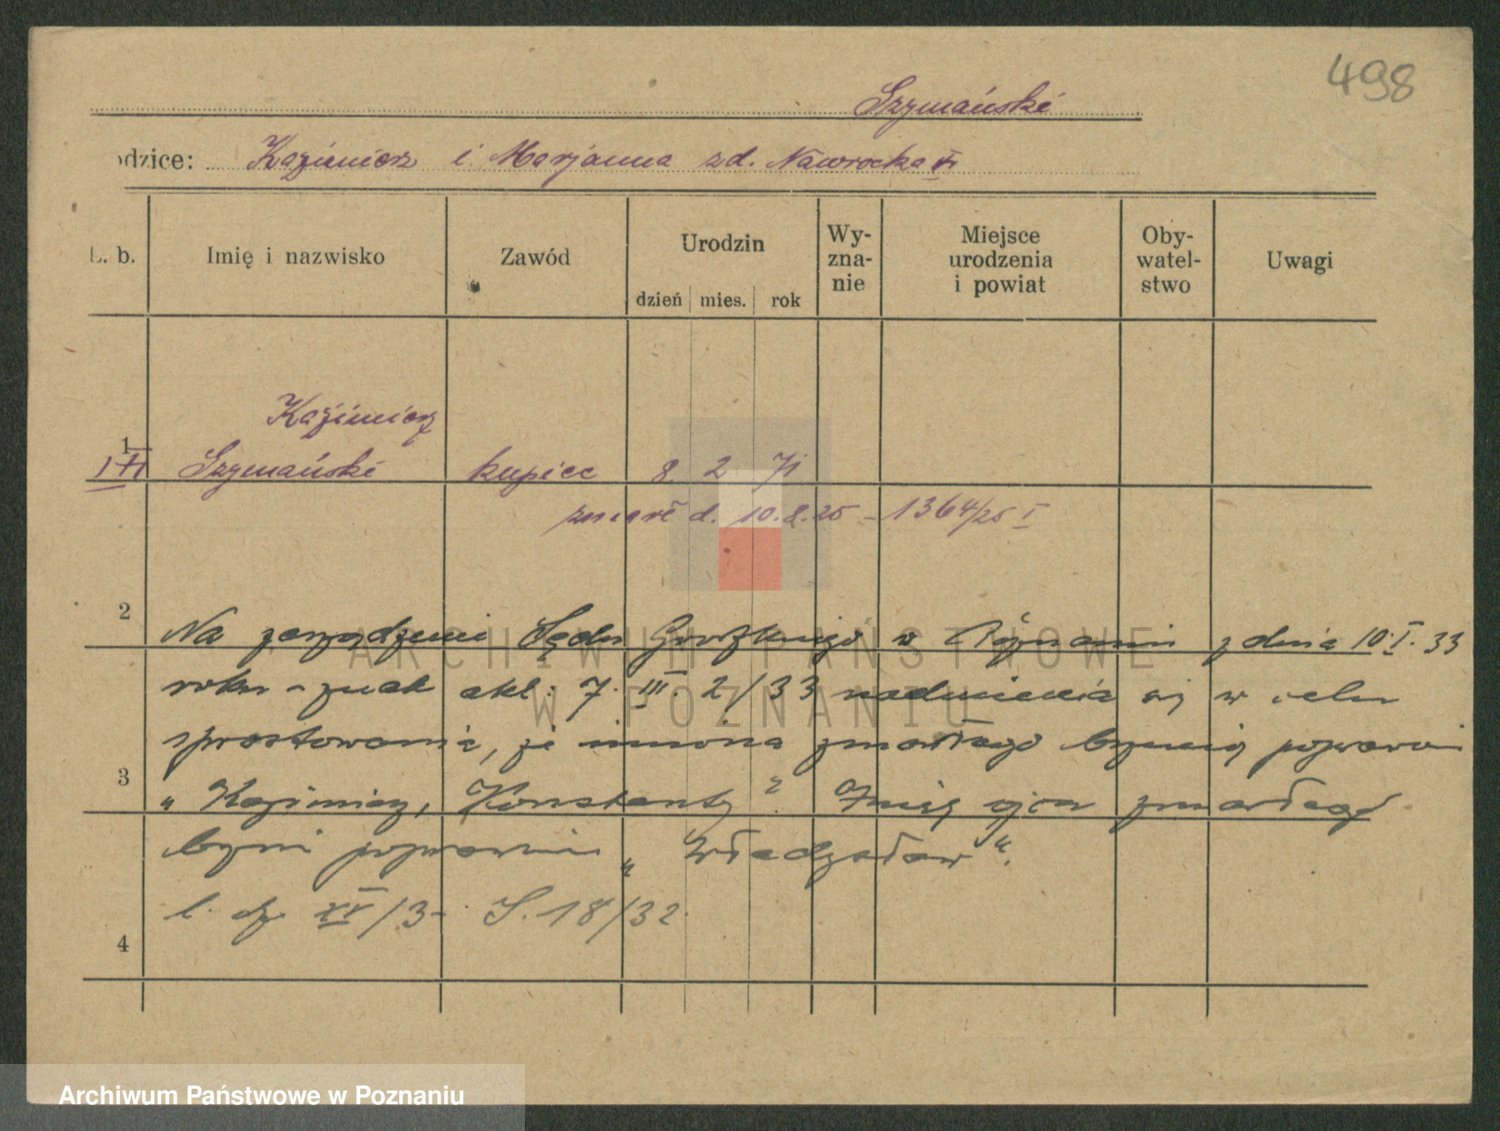 498
Szymański
odzice: Kazimierz i Marjanna zd. Nawrocka VI
L. b. Imię i nazwisko Zawód Urodzin dzień mies. rok Wyznanie Miejsce urodzenia i powiat Obywatelstwo Uwagi
Kazimierz
1
I VI Szymański kupiec 8. 2 71
zmarł d. 10.8.25 – 1364/25 I
2
Na zarządzenie Sądu Grodzkiego w Poznaniu z dnia 10.I.33
roku – znak akt: 7. III. 2/33 nadmienia się w celu
sprostowania, że imiona zmarłego brzmią poprawnie
3
„Kazimierz, Konstanty". Imię ojca zmarłego
brzmi poprawnie „Władysław".
l. dz. XV/3 – S. 18/32.
4
ARCHIWUM PAŃSTWOWE
W POZNANIU
Archiwum Państwowe w Poznaniu